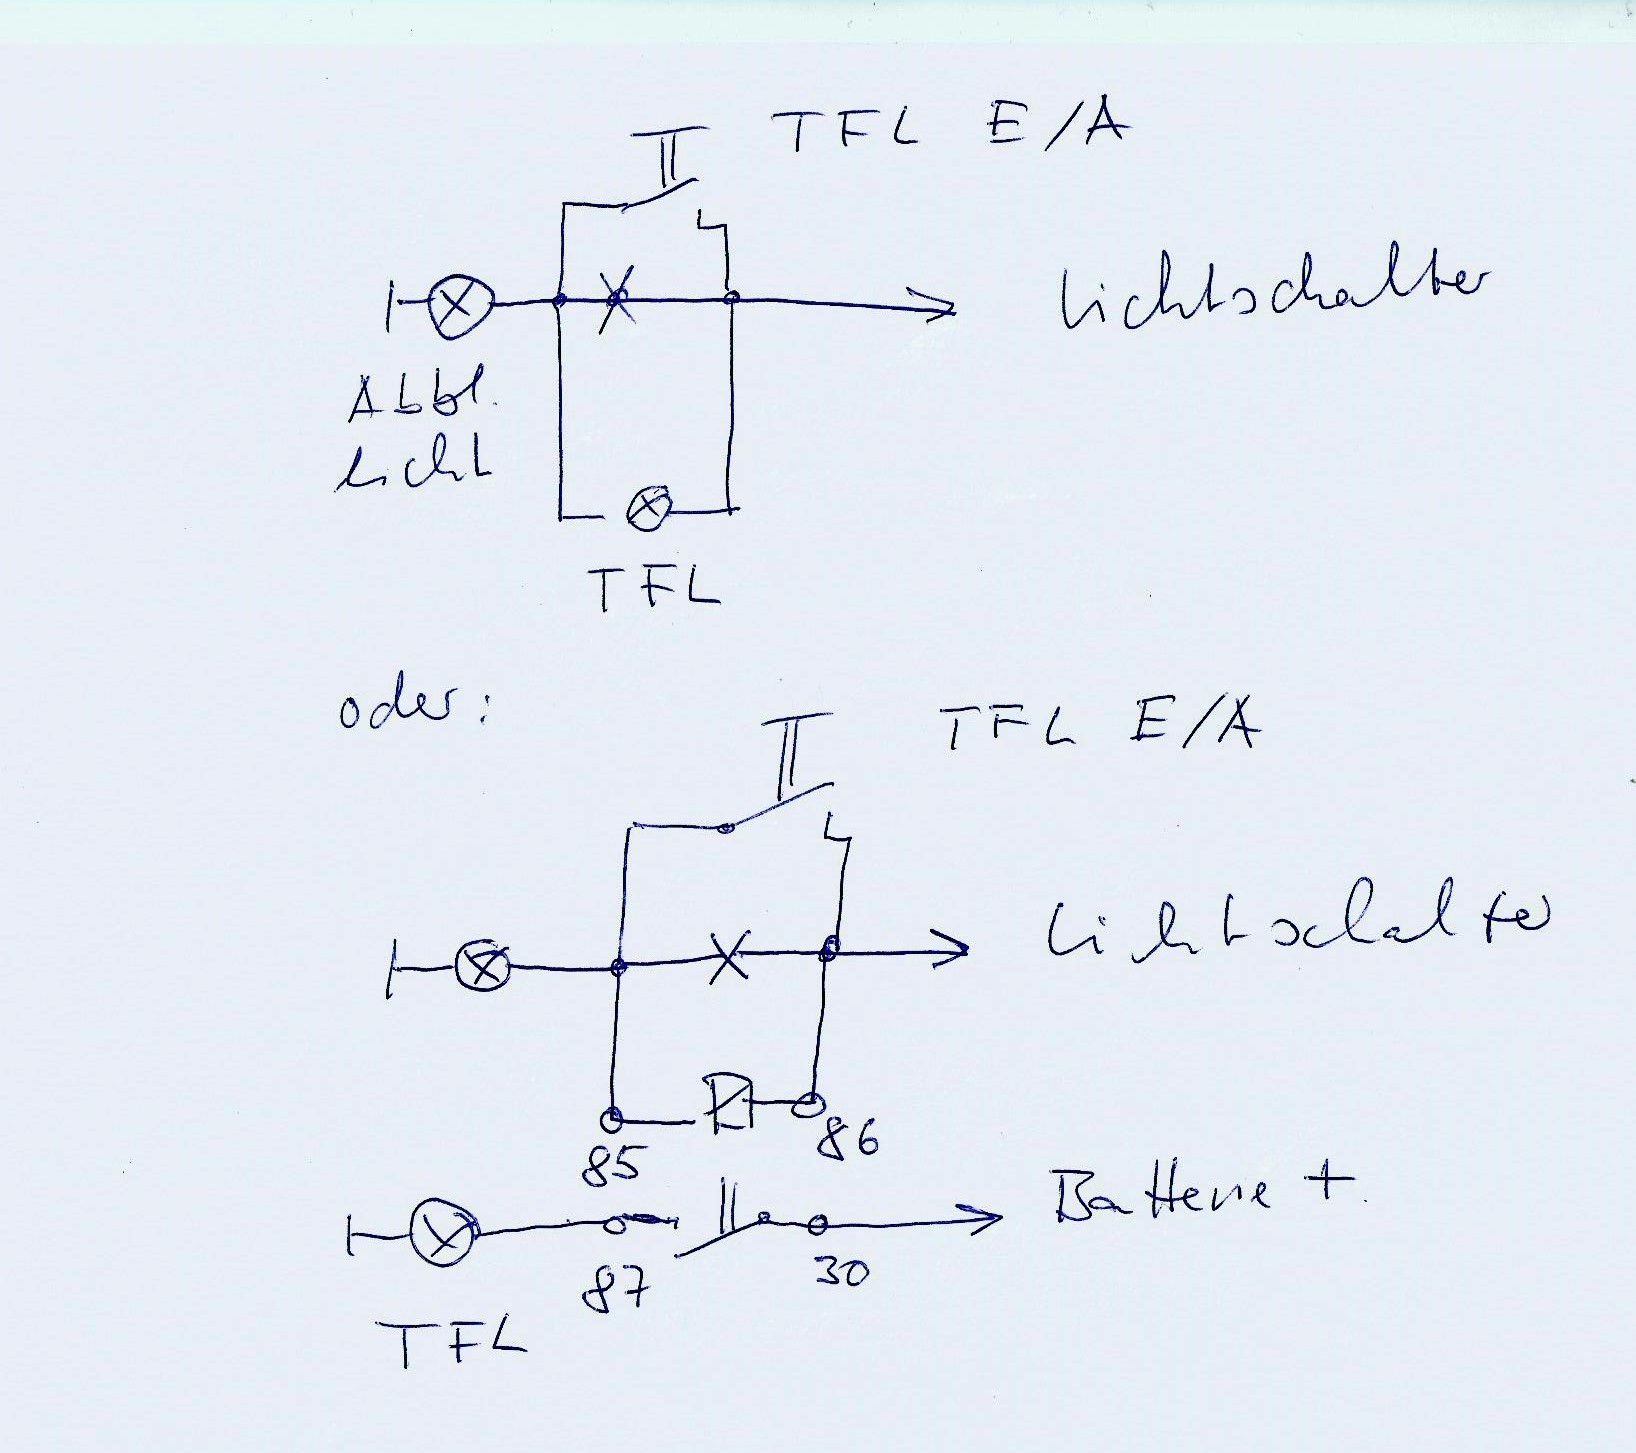 TFL E/A
Lichtschalter
Abbl.
licht
TFL
oder:
TFL E/A
Lichtschalter
85
86
Batterie +
87
30
TFL